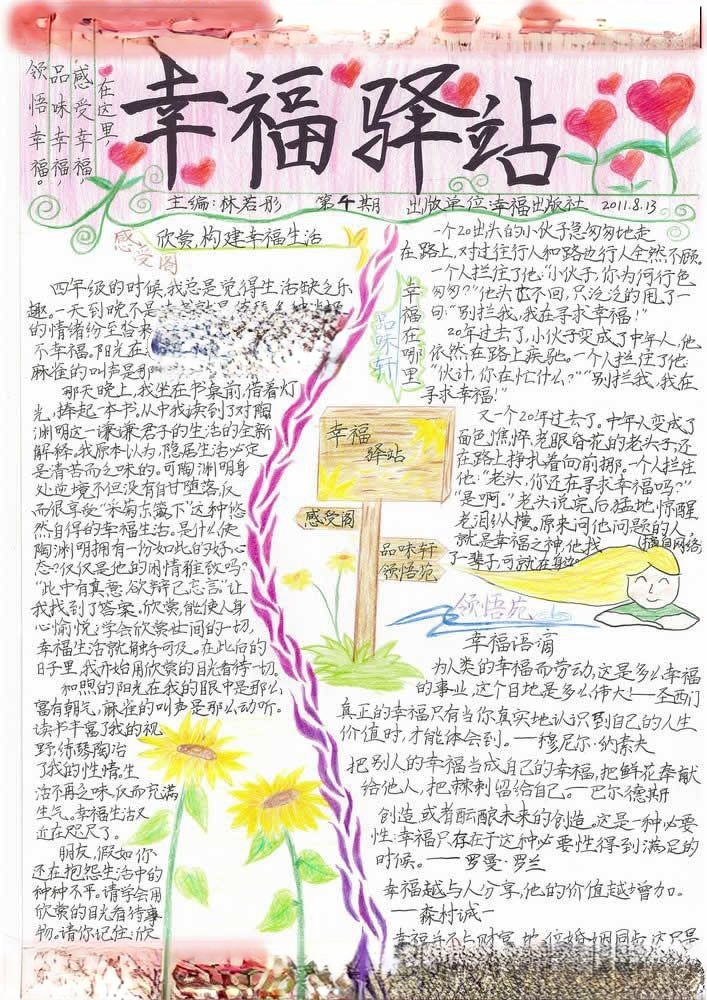 在这里，
感受幸福，
品味幸福，
领悟幸福。
幸福驿站
主编：林若彤 第4期 出版单位：幸福出版社 2011.8.13
感受阁
欣赏，构建幸福生活
四年级的时候，我总是觉得生活缺乏乐
趣。一天到晚不是
的情绪纷至沓来
不幸福。阳光在
麻雀的叫声是那
那天晚上，我坐在书桌前，借着灯
光，捧起一本书，从中我读到了对陶
渊明这一谦谦君子的生活的全新
解释。我原本认为，隐居生活必定
是清苦而乏味的。可陶渊明身
处逆境不但没有自甘堕落，反
而很享受“采菊东篱下”这种悠
然自得的幸福生活。是什么使
陶渊明拥有一份如此的好心
态？仅仅是他的闲情雅致吗？
“此中有真意，欲辩已忘言”让
我找到了答案。欣赏，能使人身
心愉悦；学会欣赏世间的一切，
幸福生活就触手可及。在此后的
日子里，我开始用欣赏的目光看待一切。
和煦的阳光在我的眼中是那么
富有朝气，麻雀的叫声是那么动听。
读书丰富了我的视
野，待琴陶冶
了我的性情。生
活不再乏味，反而充满
生气。幸福生活又
近在咫尺了。
朋友，假如你
还在抱怨生活中的
种种不平。请学会用
欣赏的目光看待事
物。请你记住：欣
品味轩
幸福在哪里
一个20出头的小伙子急匆匆地走
在路上，对过往行人和路边行人全然不顾。
一个人拦住了他：“小伙子，你为何行色
匆匆？”他头也不回，只泛泛的甩了一
句：“别拦我，我在寻求幸福！”
20年过去了，小伙子变成了中年人，他
依然在路上疾驰。一个人拦住了他：
“伙计，你在忙什么？”“别拦我，我在
寻求幸福！”
又一个20年过去了。中年人变成了
面色憔悴，老眼昏花的老头子，还
在路上挣扎着向前挪。一个人拦住
他：“老头，你还在寻求幸福吗？”
“是啊。”老头说完后猛地惊醒
老泪纵横。原来问他问题的人
就是幸福之神，他找
了一辈子，可就在身边。
（摘自网络）
幸福
驿站
感受阁
品味轩
领悟苑
领悟苑
幸福语滴
为人类的幸福而劳动，这是多么幸福
的事业，这个目地是多么伟大！——圣西门
真正的幸福只有当你真实地认识到自己的人生
价值时，才能体会到。——穆尼尔·纳素夫
把别人的幸福当成自己的幸福，把鲜花奉献
给他人，把棘刺留给自己。——巴尔德斯
创造，或者酝酿未来的创造。这是一种必要
性：幸福只存在于这种必要性得到满足的
时候。——罗曼·罗兰
幸福越与人分享，他的价值越增加。
——森村诚一